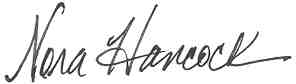 Nora Hancock